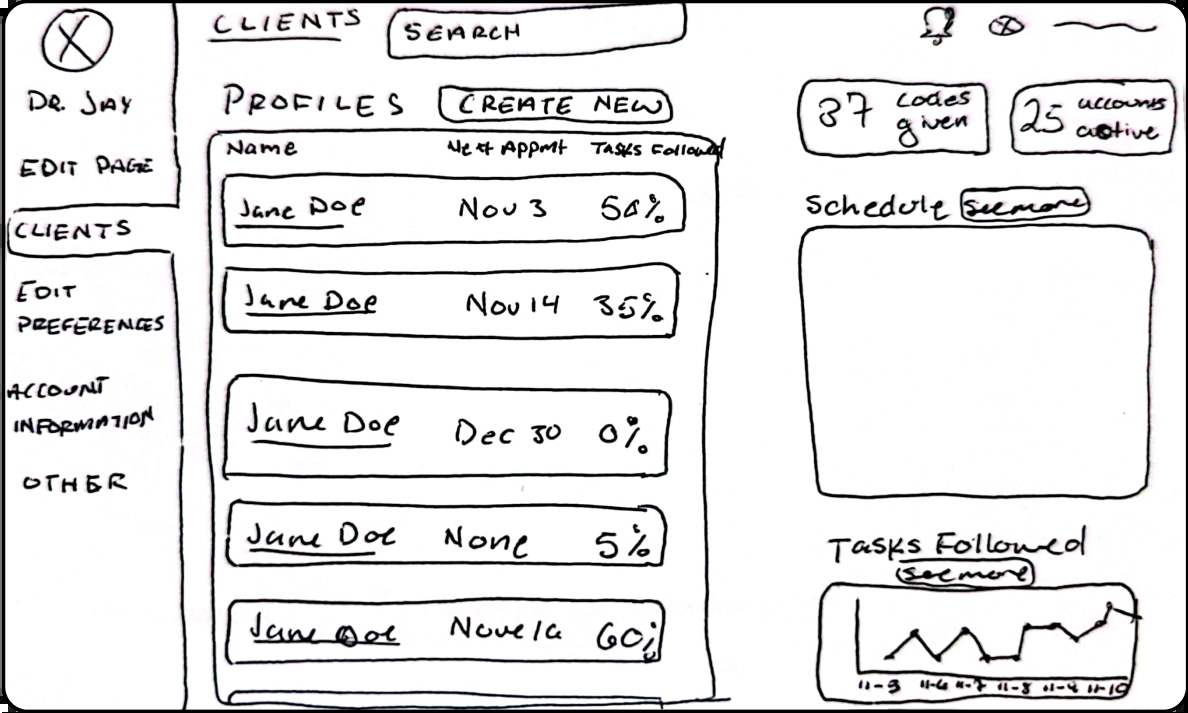 DR. JAY
EDIT PAGE
CLIENTS
EDIT
PREFERENCES
ACCOUNT
INFORMATION
OTHER
CLIENTS
SEARCH
PROFILES
CREATE NEW
Name Next Appmt Tasks Followed
Jane Doe Nov 3 50%
Jane Doe Nov 14 35%
Jane Doe Dec 30 0%
Jane Doe None 5%
Jane Doe 60%
37 codes
given
25 accounts
active
Schedule see more
Tasks Followed
see more
11-6 11-7 11-8 11-9 11-10